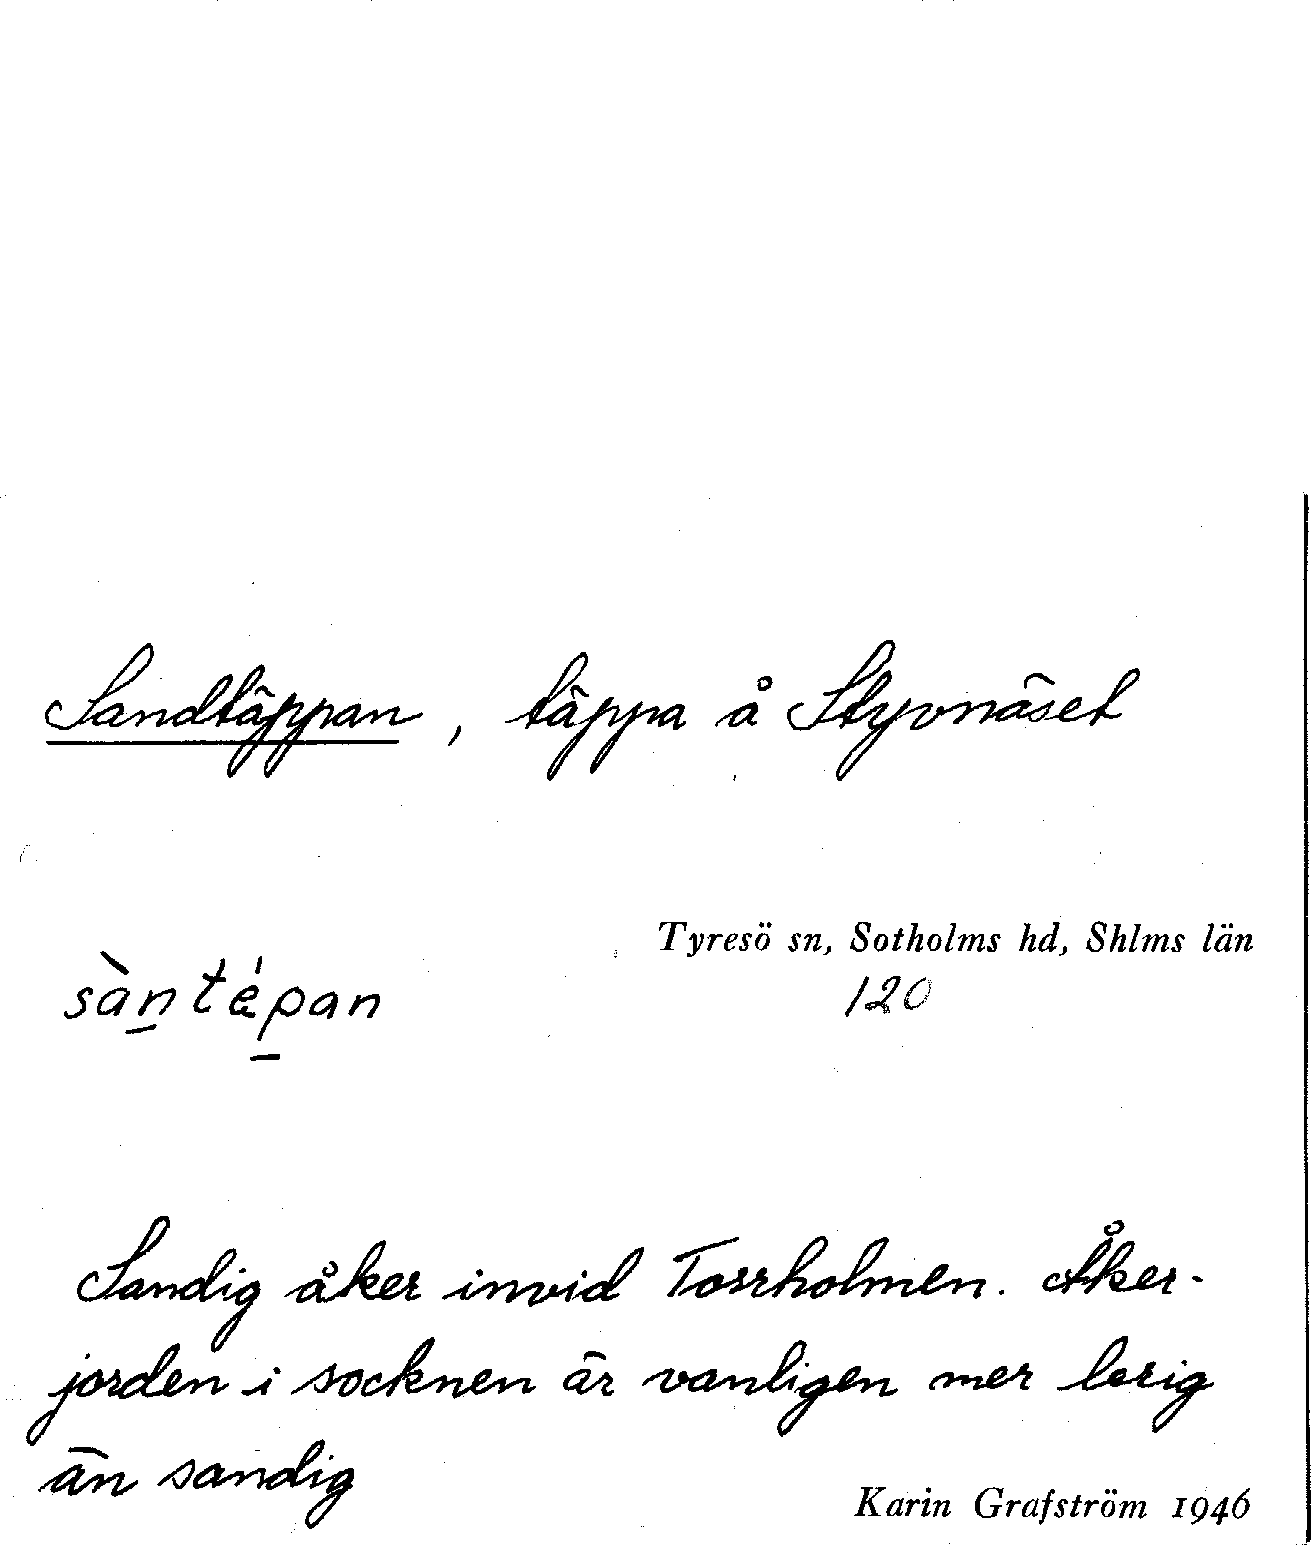 Sandtäppan, täppa å Styvnäset
Tyresö sn, Sotholms hd, Shlms län
120
sàntǽpan
Sandig åker invid Torrholmen. Åker-
jorden i socknen är vanligen mer lerig
än sandig
Karin Grafström 1946